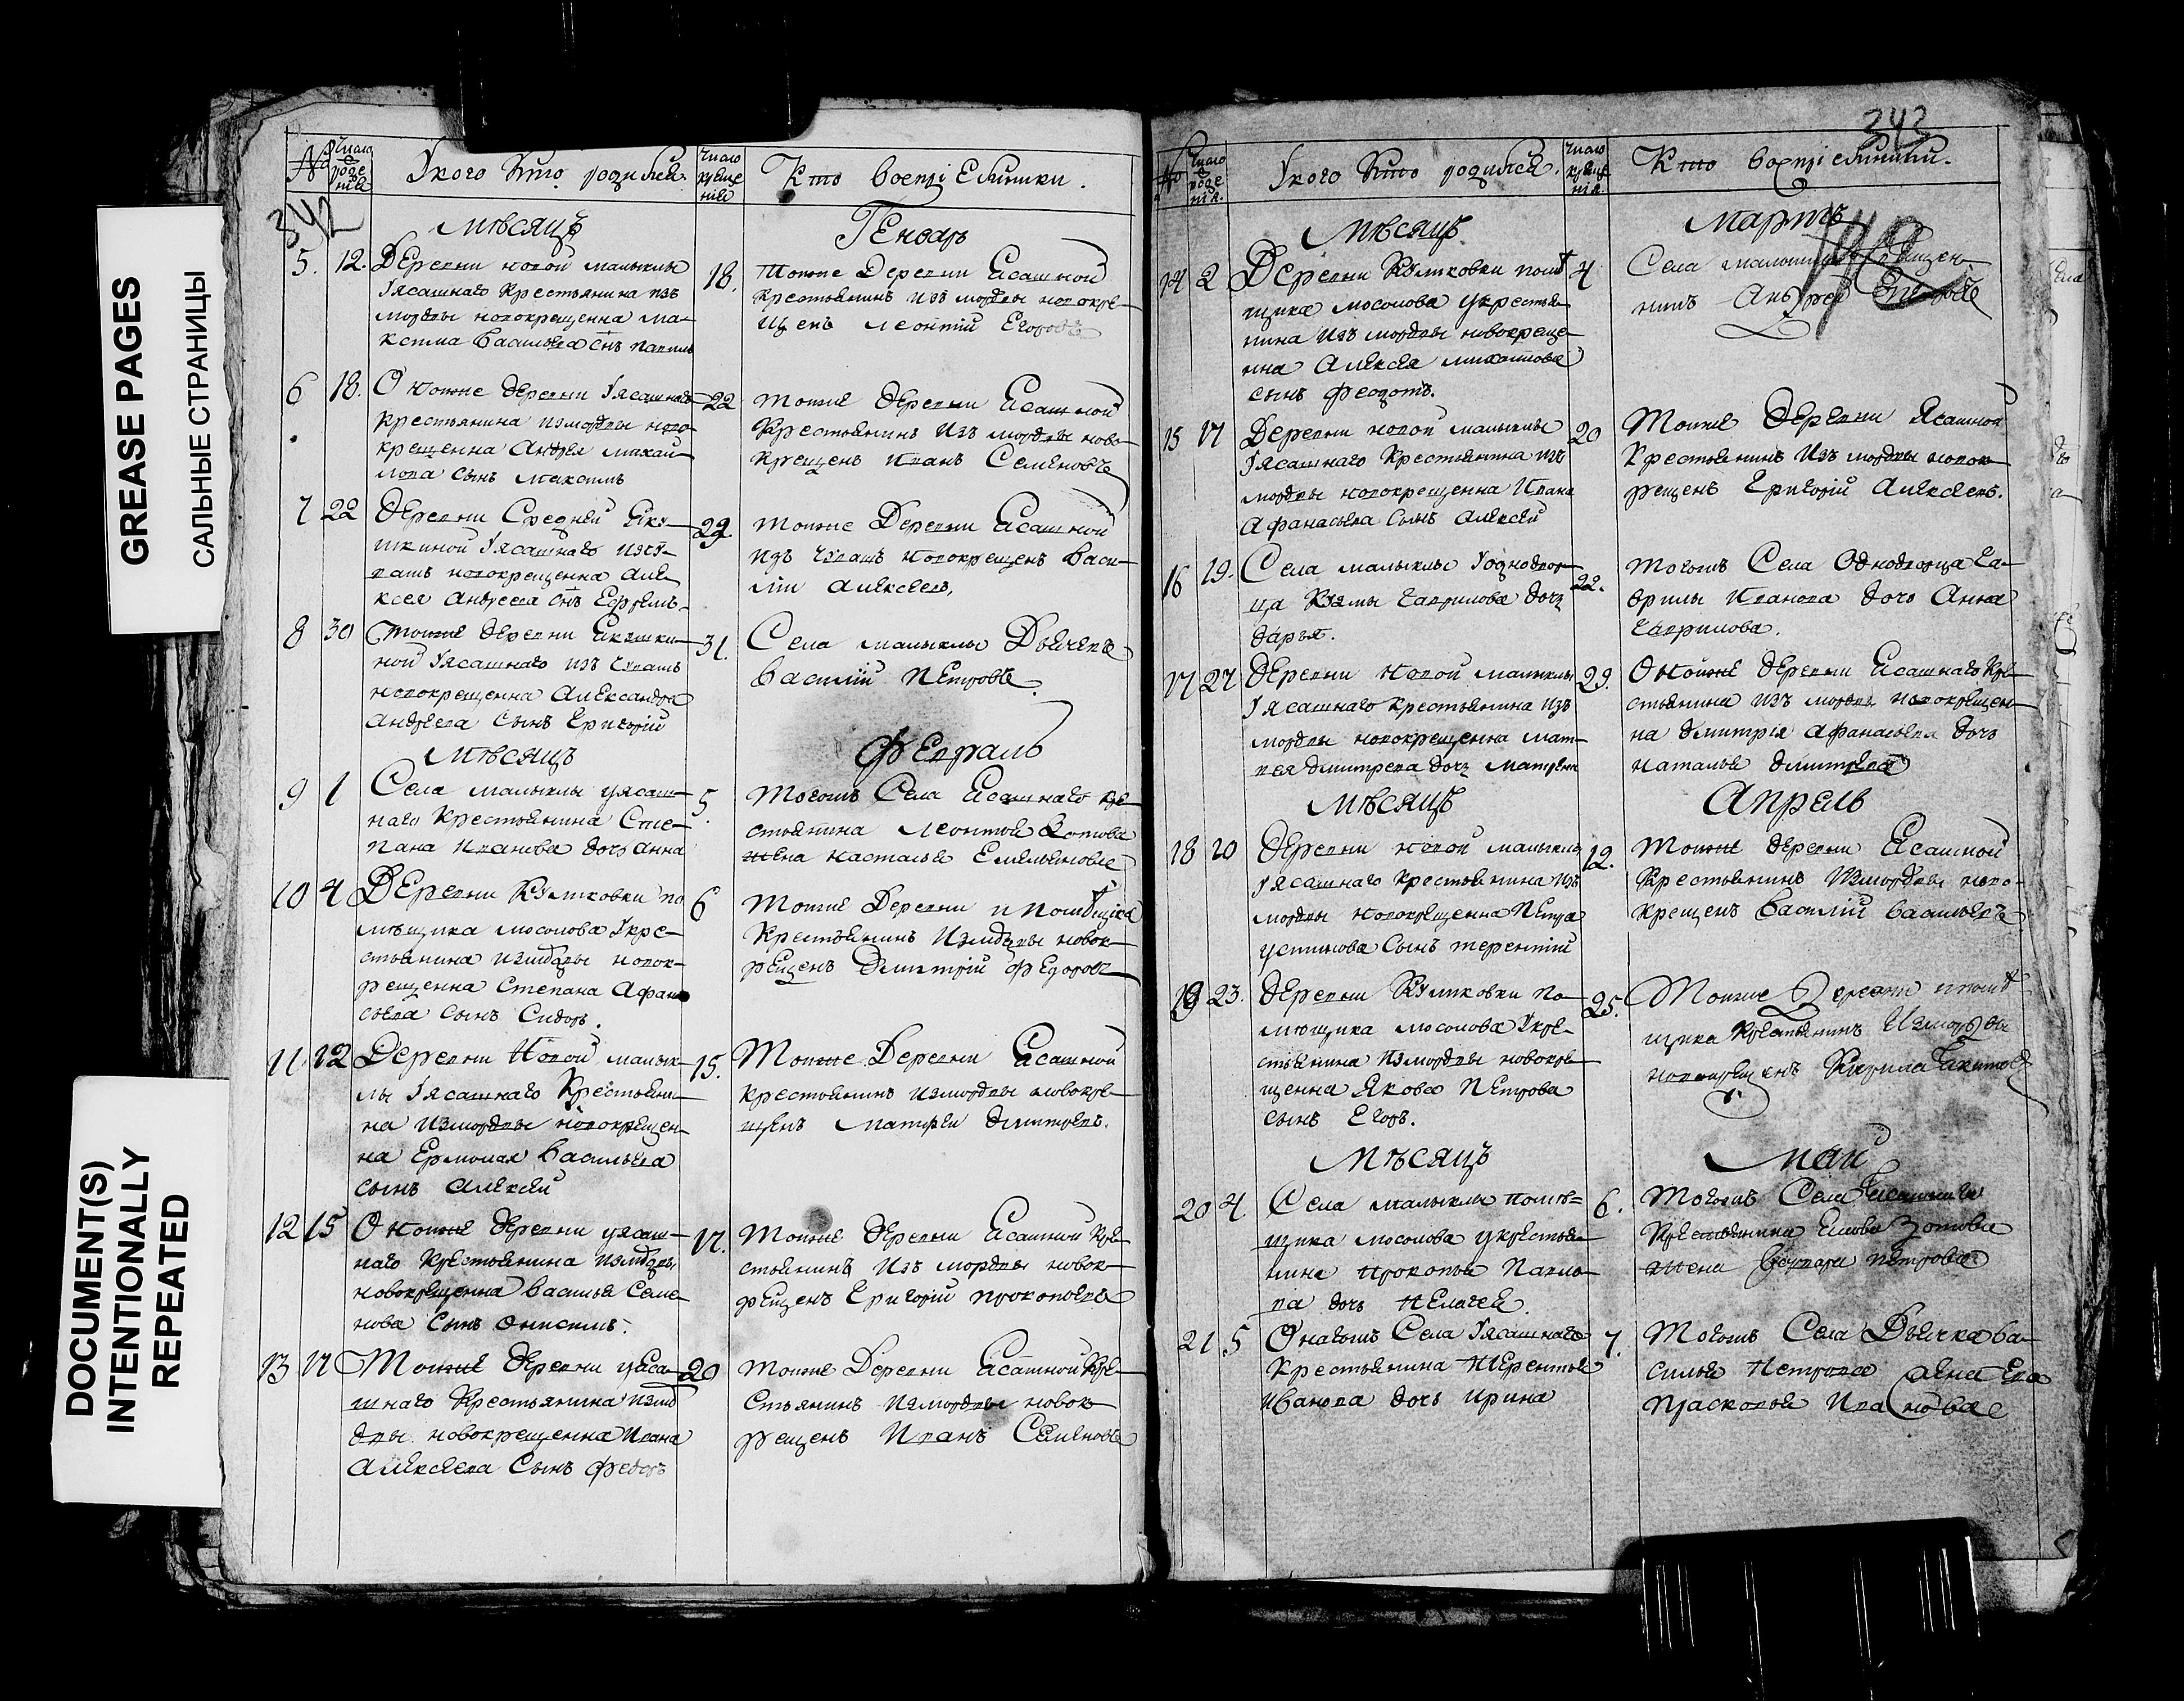 GREASE PAGES
САЛЬНЫЕ СТРАНИЦЫ
DOCUMENT(S)
INTENTIONALLY
REPEATED
342
№
Число рожденія
У кого кто родился
Число крещенія
Кто воспріемники.
Мѣсяцъ
Генварь
5. 12.
Деревни новой малыклы
у ясашнаго крестьянина изъ
мордвы новокрещенна ма-
ксима Васильева снъ
18.
тоже Деревни Ясашной
крестьянинъ изъ мордвы новокре-
щенъ леонтій Егоровъ
6 18.
Оноже деревни у ясашнаго
крестьянина измордвы ново-
крещенна Андрея михаи-
лова сынъ максимъ
22
тоже деревни Ясашной
крестьянинъ изъ мордвы ново-
крещенъ иванъ Семеновъ
7 22
деревни Средней Яку-
шкиной у ясашнаго изчу-
вашъ новокрещенна але-
ксея андреева снъ Ефремъ
29.
тоже Деревни Ясашной
изъ чувашъ новокрещенъ Васи-
лій алексеевъ,
8 30
Тоже деревни Якушки-
ной у ясашнаго изъ чувашъ
новокрещенна александра
андреева сынъ Григорій
31.
Села малыклы Дьячекъ
василий Петровъ
Мѣсяцъ
Февраль
9 1
Села малыклы у ясаш-
наго крестьянина Сте-
пана иванова дочь анна
5.
тогожъ Села Ясашнаго кре-
стьянина леонтья Зотова
жена насталья Емельяновае
10 4
Деревни Куликовки по
мѣщика мосолова у кре-
стьянина измордвы новок-
рещенна Степана Афана
сьева сынъ Сидоръ.
6
тоже Деревни
крестьянинъ измордвы новок-
рещенъ Димитрій федоровъ
11 12
Деревни Новой малык-
лы у ясашнаго крестьяни-
на измордвы новокрещен-
на Ермолая васильева
сынъ алексей
15.
Тоже Деревни Ясашной
крестьянинъ измордвы новокре-
щенъ матфей димитревъ.
12 15
Оноже деревни у ясаш-
наго крестьянина измордвы
новокрещенна василья Семе-
нова сынъ онисимъ.
17.
тоже деревни Ясашной кре-
стьянинъ изъ мордвы новок-
рещенъ Григорій прокопьевъ
13 17
Тоже деревни у яса-
шнаго крестьянина измор
двы новокрещенна ивана
алексеева сынъ федоръ
20
тоже Деревни Ясашной кре-
стьянинъ измордвы новок-
рещенъ иванъ Семеновъ
343
№
Число рожденія.
У кого кто родился.
Число крещенія.
Кто воспріемники.
Мѣсяцъ.
Мартъ
14 2
Деревни Куликовки помѣ
щика мосолова у крестья-
нина изъ мордвы новокреще-
нна алексея михаилова
сынъ феодотъ.
4
Села
нинъ Андрей
15 17
Деревни новой малыклы
у ясашнаго крестьянина изъ
мордвы новокрещенна ивана
афанасьева сынъ алексей
20
тоже деревни ясашной
крестьянинъ изъ мордвы новок-
рещенъ Григорій алексеевъ.
16 19.
Села малыклы у однодвор-
ца Кузмы Гаврилова дочь
дарья.
22.
тогожъ Села Однодворца Га-
врилы иванова дочь Анна
Гаврилова.
17 27
деревни новой малыклы
у ясашнаго крестьянина изъ
мордвы новокрещенна мат-
вея дмитрева дочь матрена
29.
Оноже деревни Ясашнаго кре-
стьянина изъ мордвы новокрещен-
на дмитрія афанасьева дочь
наталья дмитрева
Мѣсяцъ
Апрель
18 10
деревни новой малыклы
у ясашнаго крестьянина изъ
мордвы новокрещенна петра
устинова сынъ терентий
12.
тоже деревни Ясашной
крестьянинъ измордвы ново-
крещенъ василий васильевъ
19 23.
деревни Куликовки по-
мѣщика мосолова у кре-
стьянина измордвы новокре-
щенна Якова Петрова
сынъ Егоръ.
25.
Тоже Деревни помѣ
щика крестьянинъ измордвы
новокрещенъ Кирила
Мѣсяцъ
май
20 4.
Села малыклы помѣ-
щика мосолова у крестья-
нина прокопья павло-
ва дочь пелагея.
6.
тогожъ Села Ясашнаго
крестьянина Зотова
жена петрова
21 5
Онагожъ Села у ясашнаго
крестьянина терентья
иванова дочь ирина
7.
тогожъ Села Дьячка ва-
силья петрова жена Ево
Прасковья Ивановае